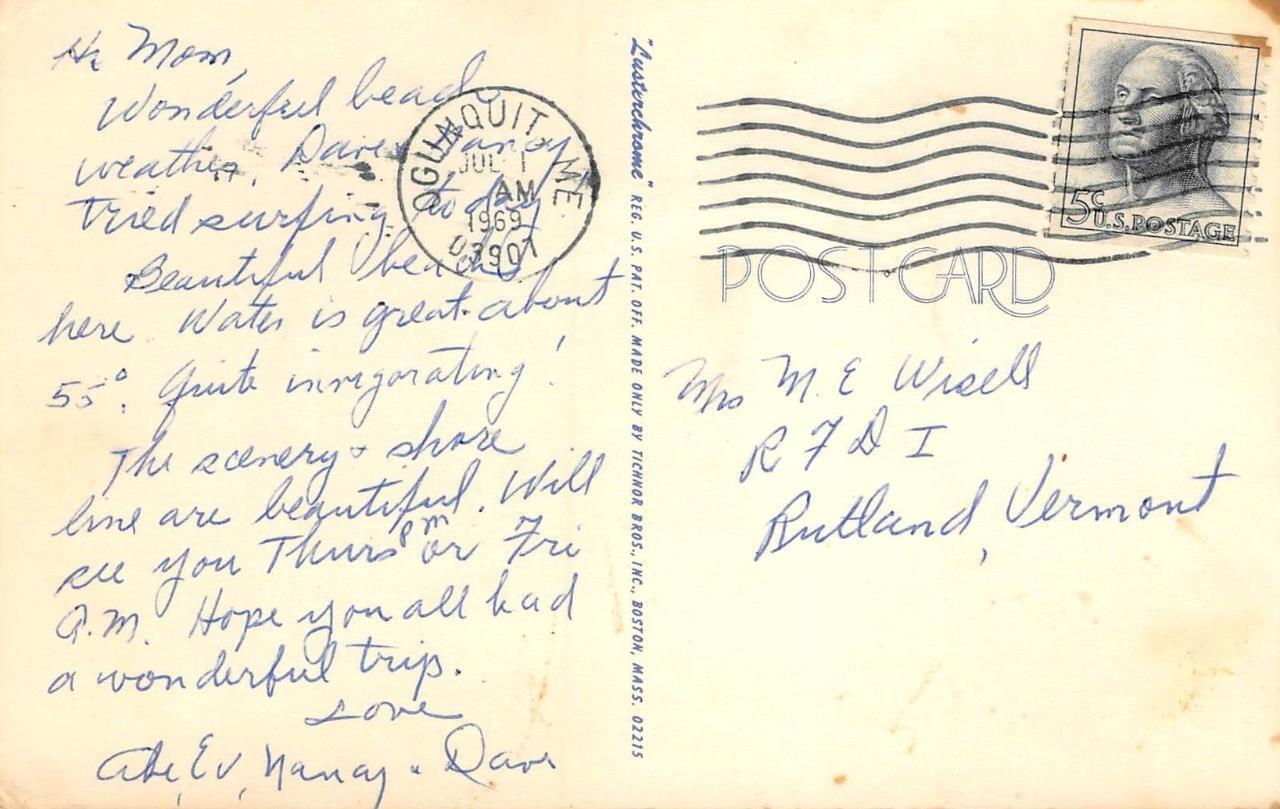 Hi Mom,
Wonderful beach
weather. Dave & Nancy
tried surfing to day
Beautiful beaches
here. Water is great. about
55°. Quite invigorating!
The scenery & shore
line are beautiful. Will
see you Thurs pm or Fri
A.M. Hope you all had
a wonderful trip.
Love
Abe, Ev, Nancy & Dave
OGUNQUIT, ME
JUL 1
AM
1969
03907
"Lusterchrome" REG. U.S. PAT. OFF. MADE ONLY BY TICHNOR BROS., INC., BOSTON, MASS. 02215
5c
U.S. POSTAGE
POST CARD
Mrs M. E Wisell
R F D I
Rutland, Vermont